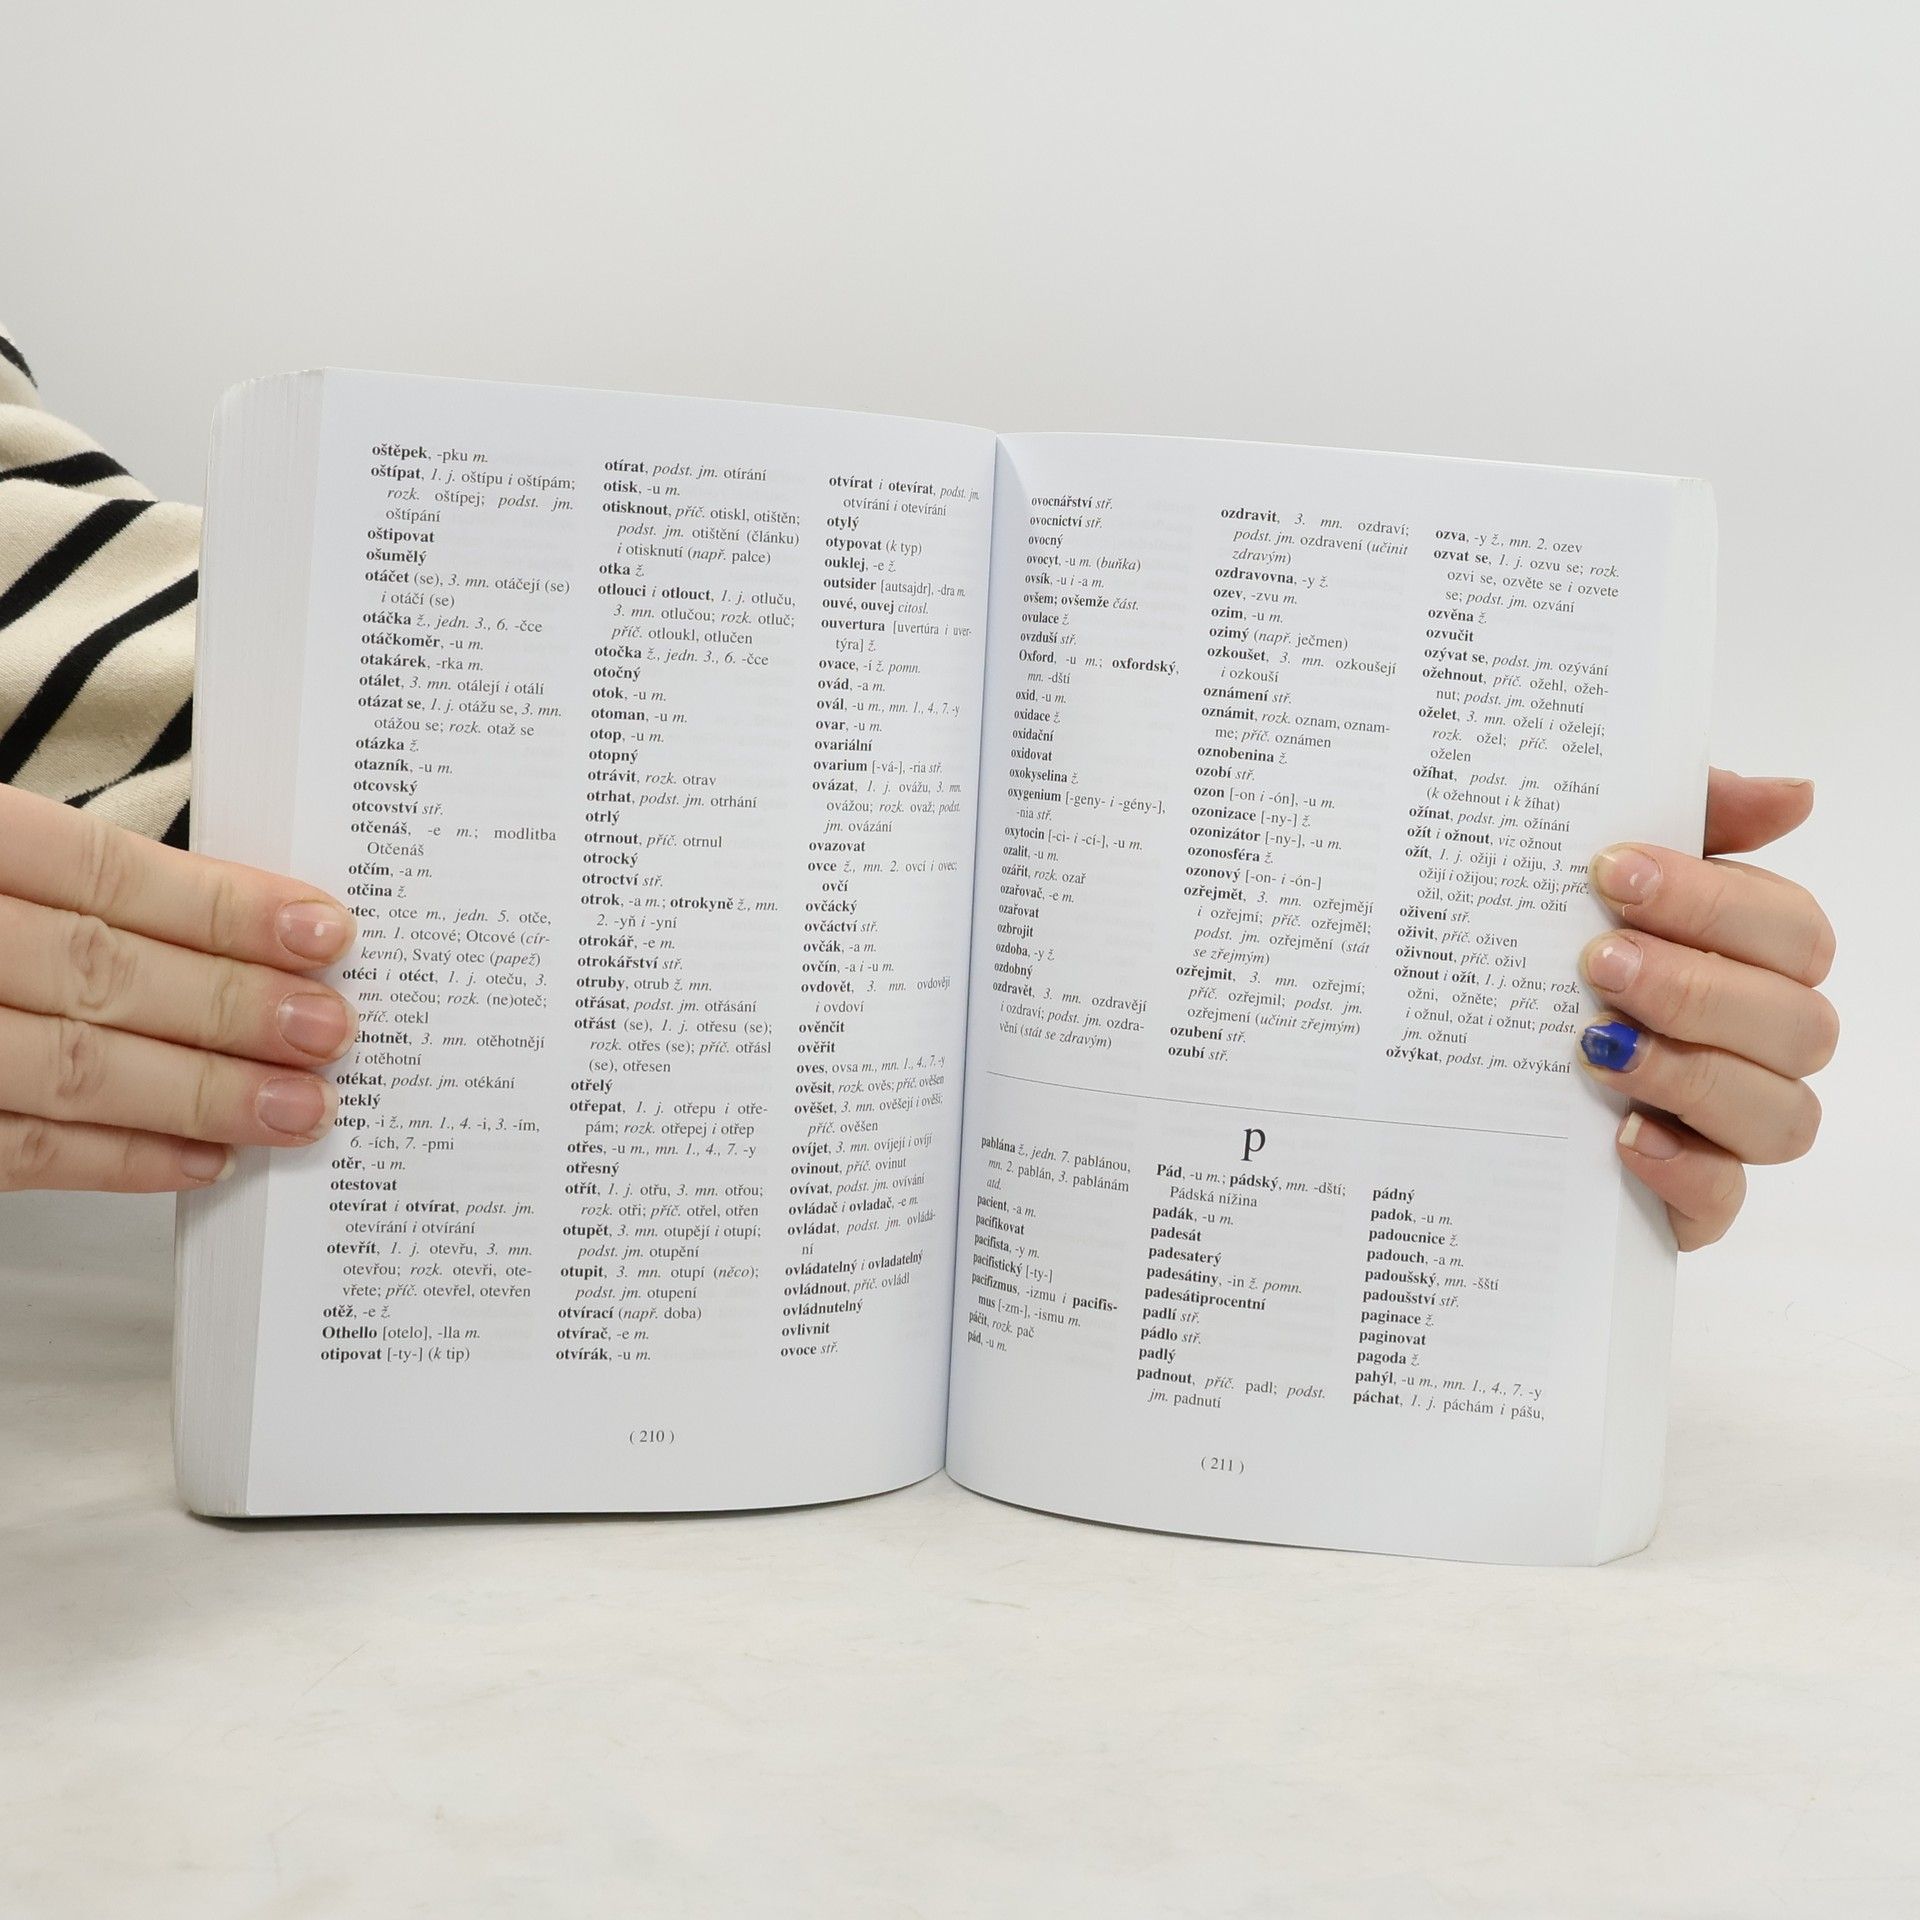 oštěpek, -pku m.
oštípat, 1. j. oštípu i oštípám;
rozk. oštípej; podst. jm.
oštípání
oštipovat
ošumělý
otáčet (se), 3. mn. otáčejí (se)
i otáčí (se)
otáčka ž., jedn. 3., 6. -čce
otáčkoměr, -u m.
otakárek, -rka m.
otálet, 3. mn. otálejí i otálí
otázat se, 1. j. otážu se, 3. mn.
otážou se; rozk. otaž se
otázka ž.
otazník, -u m.
otcovský
otcovství stř.
otčenáš, -e m.; modlitba
Otčenáš
otčím, -a m.
otčina ž.
otec, otce m., jedn. 5. otče,
mn. 1. otcové; Otcové (cír-
kevní), Svatý otec (papež)
otéci i otéct, 1. j. oteču, 3.
mn. otečou; rozk. (ne)oteč;
příč. otekl
ěhotnět, 3. mn. otěhotnějí
i otěhotní
otékat, podst. jm. otékání
oteklý
otep, -i ž., mn. 1., 4. -i, 3. -ím,
6. -ích, 7. -pmi
otěr, -u m.
otestovat
otevírat i otvírat, podst. jm.
otevírání i otvírání
otevřít, 1. j. otevřu, 3. mn.
otevřou; rozk. otevři, ote-
vřete; příč. otevřel, otevřen
otěž, -e ž.
Othello [otelo], -lla m.
otipovat [-ty-] (k tip)
otírat, podst. jm. otírání
otisk, -u m.
otisknout, příč. otiskl, otištěn;
podst. jm. otištění (článku)
i otisknutí (např. palce)
otka ž.
otlouci i otlouct, 1. j. otluču,
3. mn. otlučou; rozk. otluč;
příč. otloukl, otlučen
otočka ž., jedn. 3., 6. -čce
otočný
otok, -u m.
otoman, -u m.
otop, -u m.
otopný
otrávit, rozk. otrav
otrhat, podst. jm. otrhání
otrlý
otrnout, příč. otrnul
otrocký
otroctví stř.
otrok, -a m.; otrokyně ž., mn.
2. -yň i -yní
otrokář, -e m.
otrokářství stř.
otruby, otrub ž. mn.
otřásat, podst. jm. otřásání
otřást (se), 1. j. otřesu (se);
rozk. otřes (se); příč. otřásl
(se), otřesen
otřelý
otřepat, 1. j. otřepu i otře-
pám; rozk. otřepej i otřep
otřes, -u m., mn. 1., 4., 7. -y
otřesný
otřít, 1. j. otřu, 3. mn. otřou;
rozk. otři; příč. otřel, otřen
otupět, 3. mn. otupějí i otupí;
podst. jm. otupění
otupit, 3. mn. otupí (něco);
podst. jm. otupení
otvírací (např. doba)
otvírač, -e m.
otvírák, -u m.
otvírat i otevírat, podst. jm.
otvírání i otevírání
otylý
otypovat (k typ)
ouklej, -e ž.
outsider [autsajdr], -dra m.
ouvé, ouvej citosl.
ouvertura [uvertúra i uver-
týra] ž.
ovace, -í ž. pomn.
ovád, -a m.
ovál, -u m., mn. 1., 4., 7. -y
ovar, -u m.
ovariální
ovarium [-vá-], -ria stř.
ovázat, 1. j. ovážu, 3. mn.
ovážou; rozk. ovaž; podst.
jm. ovázání
ovazovat
ovce ž., mn. 2. ovcí i ovec;
ovčí
ovčácký
ovčáctví stř.
ovčák, -a m.
ovčín, -a i -u m.
ovdovět, 3. mn. ovdovějí
i ovdoví
ověnčit
ověřit
oves, ovsa m., mn. 1., 4., 7. -y
ověsit, rozk. ověs; příč. ověšen
ověšet, 3. mn. ověšejí i ověší;
příč. ověšen
ovíjet, 3. mn. ovíjejí i ovíjí
ovinout, příč. ovinut
ovívat, podst. jm. ovívání
ovládač i ovladač, -e m.
ovládat, podst. jm. ovládá-
ní
ovládatelný i ovladatelný
ovládnout, příč. ovládl
ovládnutelný
ovlivnit
ovoce stř.
( 210 )
ovocnářství stř.
ovocnictví stř.
ovocný
ovocyt, -u m. (buňka)
ovsík, -u i -a m.
ovšem; ovšemže část.
ovulace ž.
ovzduší stř.
Oxford, -u m.; oxfordský,
mn. -dští
oxid, -u m.
oxidace ž.
oxidační
oxidovat
oxokyselina ž.
oxygenium [-geny- i -gény-],
-nia stř.
oxytocin [-ci- i -cí-], -u m.
ozalit, -u m.
ozářit, rozk. ozař
ozařovač, -e m.
ozařovat
ozbrojit
ozdoba, -y ž.
ozdobný
ozdravět, 3. mn. ozdravějí
i ozdraví; podst. jm. ozdra-
vění (stát se zdravým)
ozdravit, 3. mn. ozdraví;
podst. jm. ozdravení (učinit
zdravým)
ozdravovna, -y ž.
ozev, -zvu m.
ozim, -u m.
ozimý (např. ječmen)
ozkoušet, 3. mn. ozkoušejí
i ozkouší
oznámení stř.
oznámit, rozk. oznam, oznam-
me; příč. oznámen
oznobenina ž.
ozobí stř.
ozon [-on i -ón], -u m.
ozonizace [-ny-] ž.
ozonizátor [-ny-], -u m.
ozonosféra ž.
ozonový [-on- i -ón-]
ozřejmět, 3. mn. ozřejmějí
i ozřejmí; příč. ozřejměl;
podst. jm. ozřejmění (stát
se zřejmým)
ozřejmit, 3. mn. ozřejmí;
příč. ozřejmil; podst. jm.
ozřejmení (učinit zřejmým)
ozubení stř.
ozubí stř.
ozva, -y ž., mn. 2. ozev
ozvat se, 1. j. ozvu se; rozk.
ozvi se, ozvěte se i ozvete
se; podst. jm. ozvání
ozvěna ž.
ozvučit
ozývat se, podst. jm. ozývání
ožehnout, příč. ožehl, ožeh-
nut; podst. jm. ožehnutí
oželet, 3. mn. oželí i oželejí;
rozk. ožel; příč. oželel,
oželen
ožíhat, podst. jm. ožíhání
(k ožehnout i k žíhat)
ožínat, podst. jm. ožínání
ožít i ožnout, viz ožnout
ožít, 1. j. ožiji i ožiju, 3. mn.
ožijí i ožijou; rozk. ožij; příč.
ožil, ožit; podst. jm. ožití
oživení stř.
oživit, příč. oživen
oživnout, příč. oživl
ožnout i ožít, 1. j. ožnu; rozk.
ožni, ožněte; příč. ožal
i ožnul, ožat i ožnut; podst.
jm. ožnutí
ožvýkat, podst. jm. ožvýkání
p
pablána ž., jedn. 7. pablánou,
mn. 2. pablán, 3. pablánám
atd.
pacient, -a m.
pacifikovat
pacifista, -y m.
pacifistický [-ty-]
pacifizmus, -izmu i pacifis-
mus [-zm-], -ismu m.
páčit, rozk. pač
pád, -u m.
Pád, -u m.; pádský, mn. -dští;
Pádská nížina
padák, -u m.
padesát
padesaterý
padesátiny, -in ž. pomn.
padesátiprocentní
padlí stř.
pádlo stř.
padlý
padnout, příč. padl; podst.
jm. padnutí
pádný
padok, -u m.
padoucnice ž.
padouch, -a m.
padoušský, mn. -šští
padoušství stř.
paginace ž.
paginovat
pagoda ž.
pahýl, -u m., mn. 1., 4., 7. -y
páchat, 1. j. páchám i pášu,
( 211 )